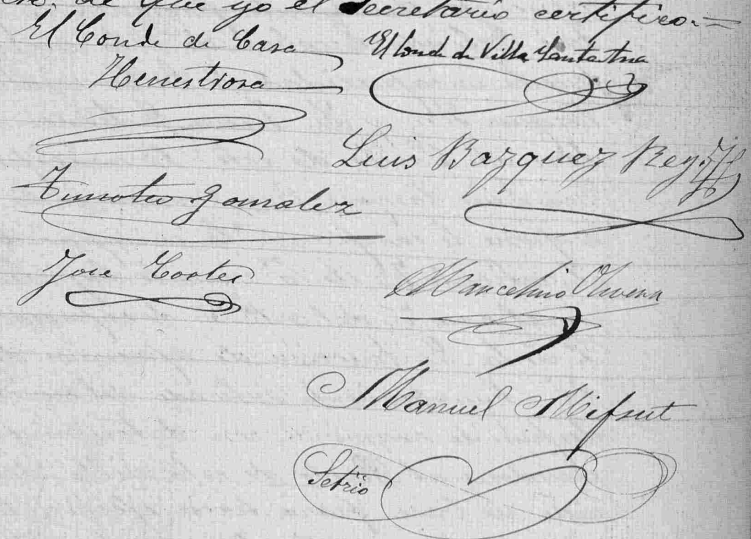 de que yo el Secretario certifico.=
El Conde de Casa
Henestrosa
El Conde de Villa Santa Ana
Luis Bazquez Rey
Timoteo Gonzalez
Jose Cortes
Marcelino Olivera
Manuel Mifsut
Setrio